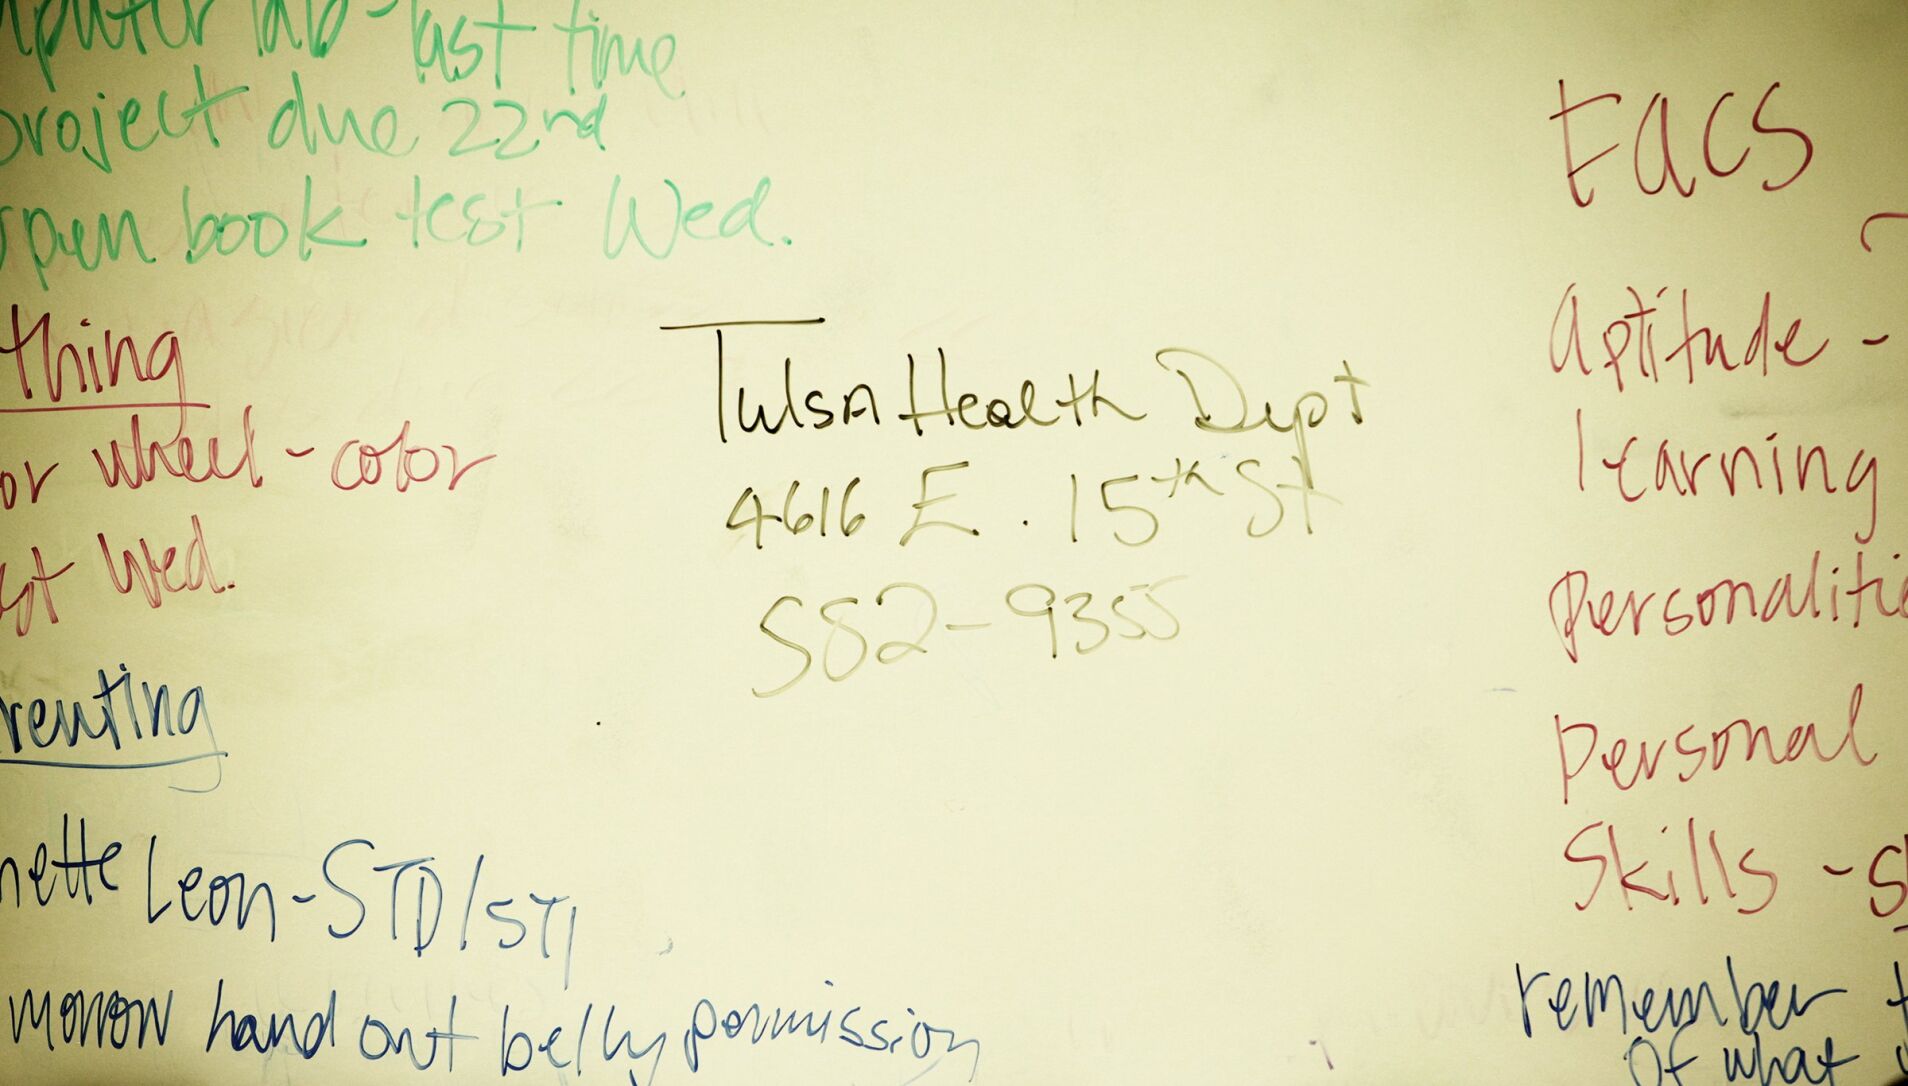 computer lab - last time
project due 22nd
open book test Wed.
thing
or wheel - color
st Wed.
renting
nette Leon - STD/STI
morrow hand out belly permission
Tulsa Health Dept
4616 E. 15th St
582-9355
FACS
Aptitude -
learning
Personalitie
Personal
Skills - S
remember t
of what